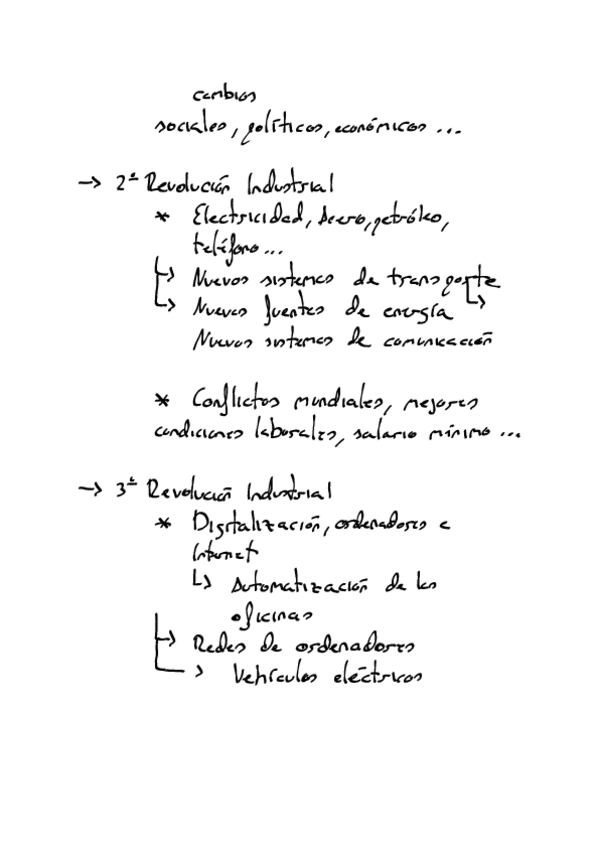 cambios
sociales, políticos, económicos ...
→ 2ª Revolución Industrial
* Electricidad, Acero, petróleo,
teléfono...
↳ Nuevos sistemas de transporte
↳ Nuevas fuentes de energía ↳
Nuevos sistemas de comunicación
* Conflictos mundiales, mejores
condiciones laborales, salario mínimo ...
→ 3ª Revolución Industrial
* Digitalización, ordenadores e
Internet
↳ Automatización de las
oficinas
↳ Redes de ordenadores
↳ Vehículos eléctricos